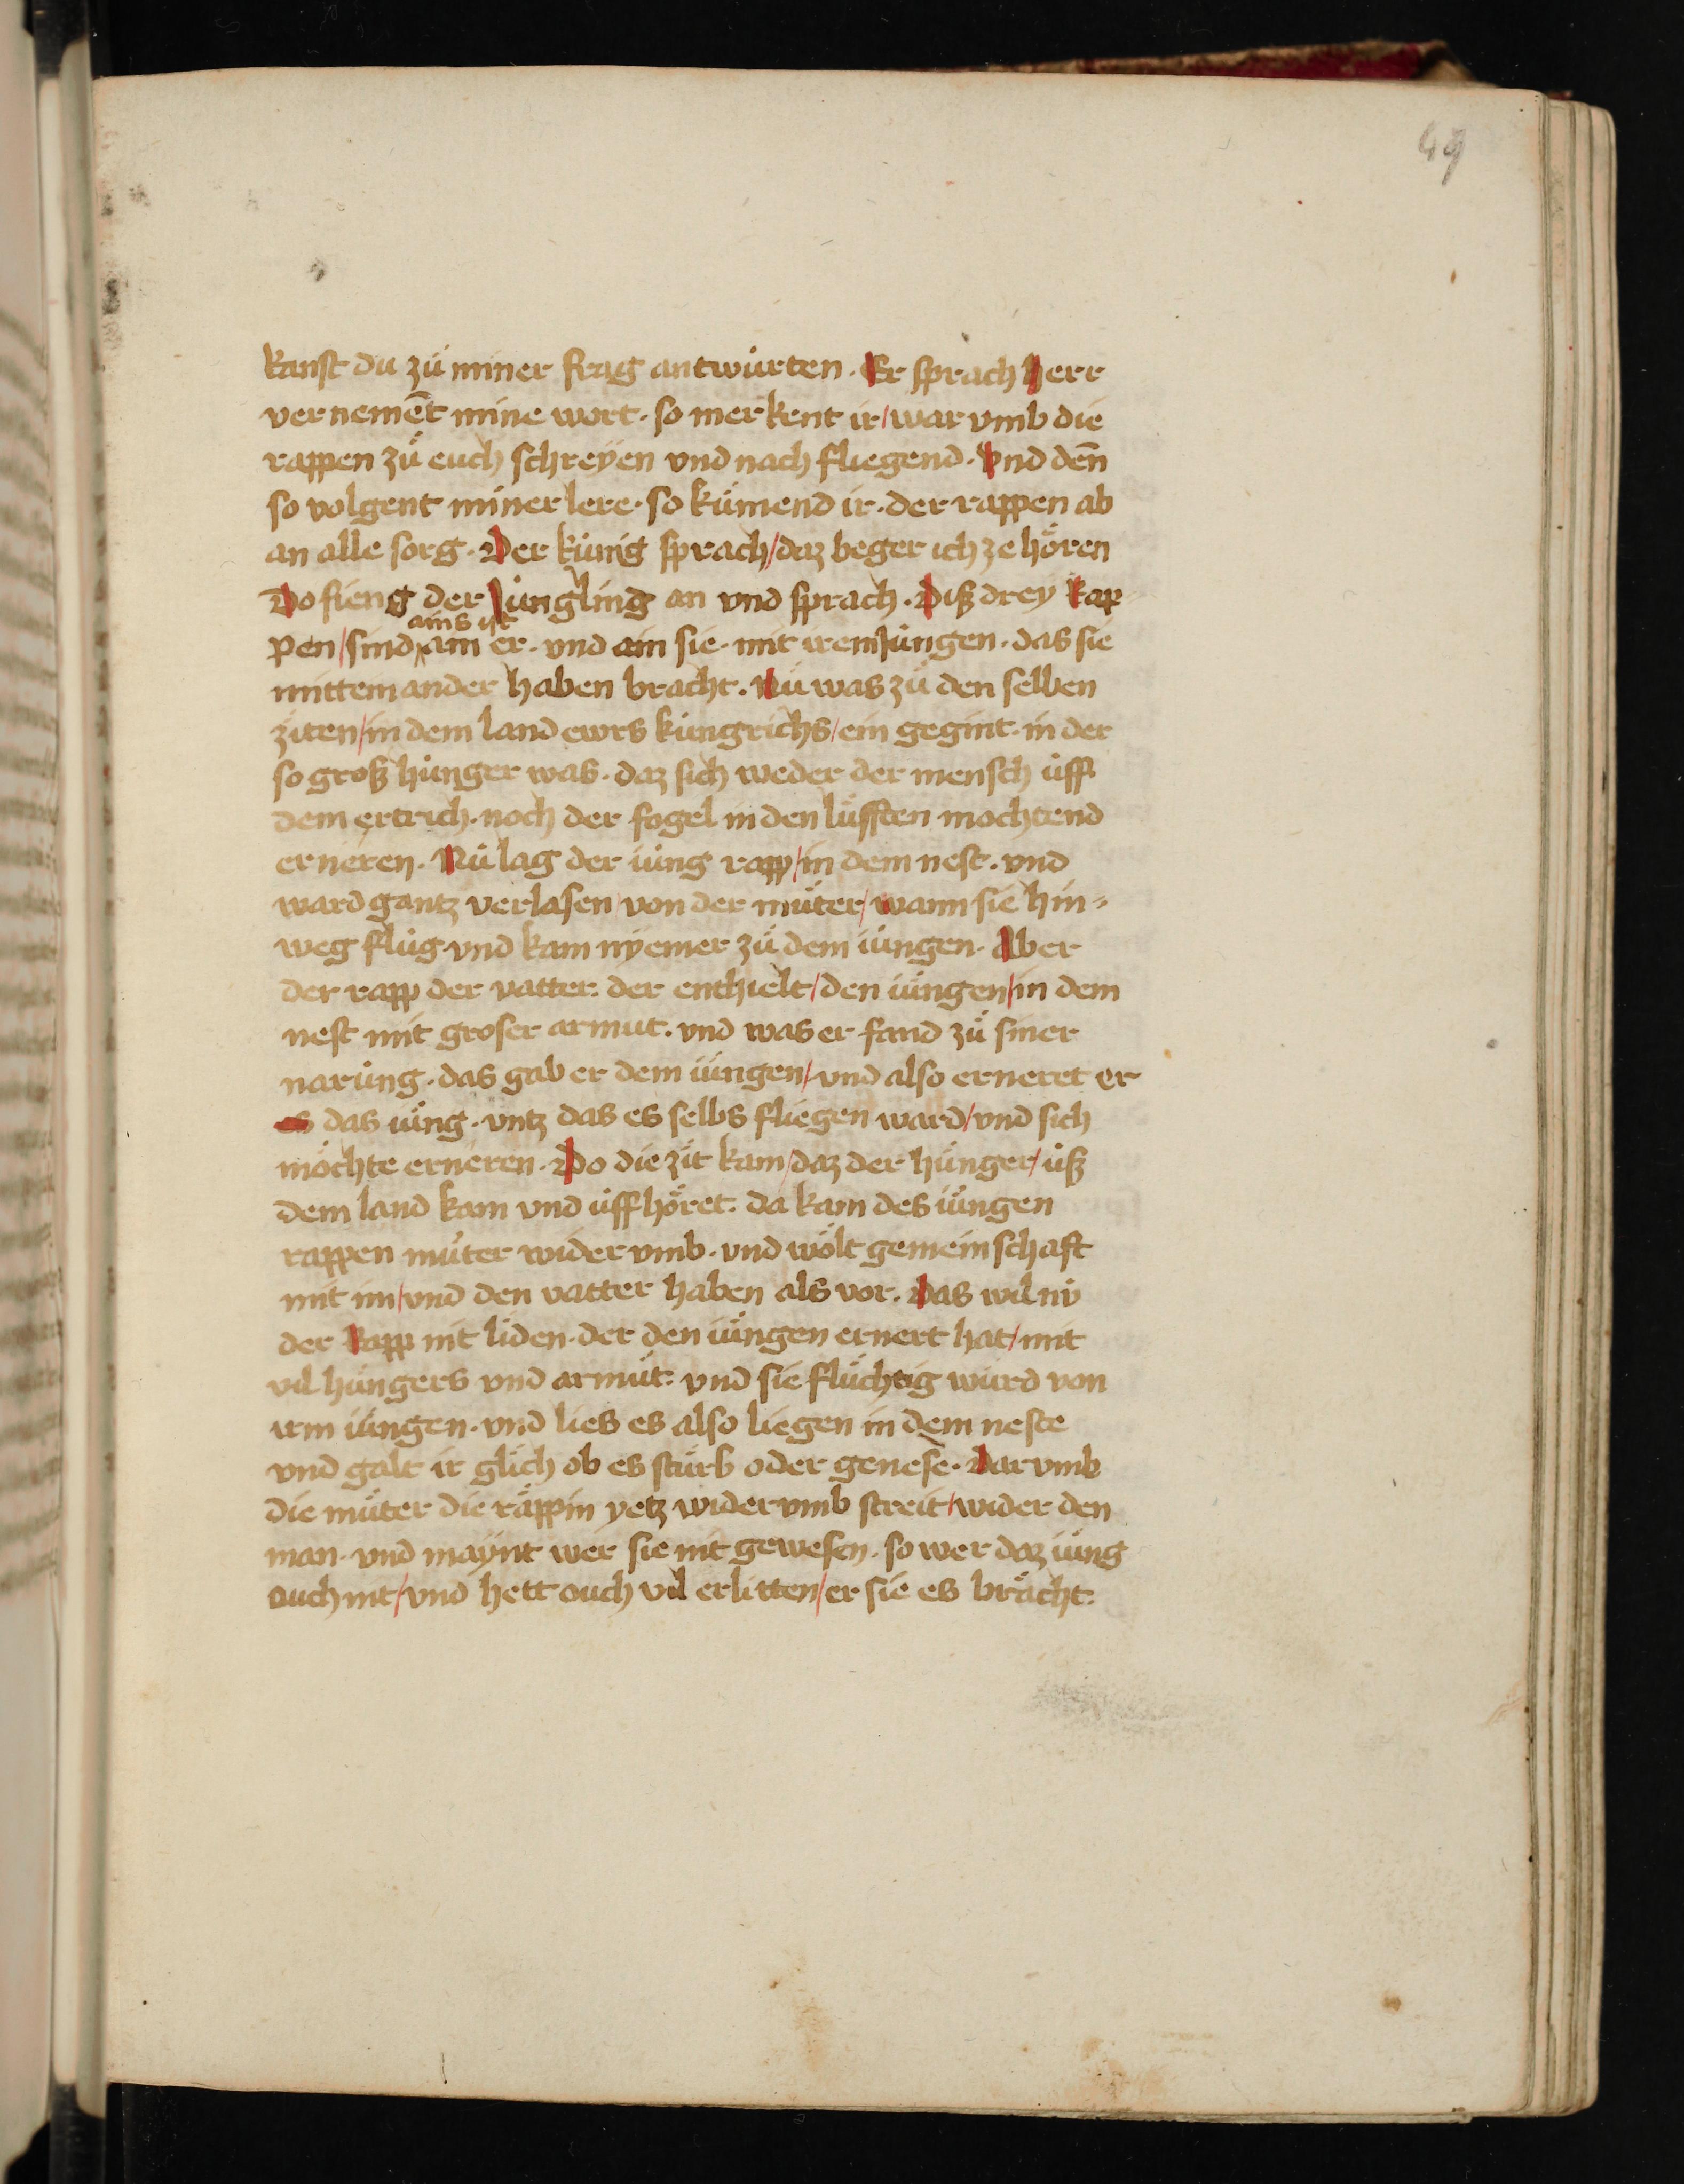 49
kanst du zů miner frag antwürten · Er sprach herr
vernemēt mine wort · so merkent ir / warvmb die
rappen zů euch schreÿen vnd nach fliegend · Vnd deñ
so volgent miner lere · so kůmend ir · der rappen ab
an alle sorg · Der kůnig sprach / daz beger ich ze hören
Do fieng der Jüngling an vnd sprach · Diß dreÿ Rap
ains ist
pen / sind ain er · vnd ain sie · mit irem Jüngen · das sie
mittem ander haben bracht · Nů was zů den selben
ziten / in dem land ewrs küngrichs / ein gegint · in der
so groß hůnger was · daz sich weder der mensch ůff
dem ertrich · noch der fogel in den lüfften mochtend
erneren · Nů lag der iüng rapp / in dem nest · vnd
ward gantz verlasen / von der můter / wann sie hin-
weg flůg vnd kam nÿemer zů dem iüngen · Aber
der rapp der vatter · der enthielt / den iüngen / in dem
nest mit groser armut · vnd was er fand zů siner
narůng · das gab er dem iüngen / vnd also erneret er
es das iüng · vntz das es selbs fliegen ward / vnd sich
möchte erneren · Do die zit kam / daz der hůnger / ůß
dem land kam vnd ůffhöret · da kam des iüngen
rappen můter wider vmb · vnd wölt gemeinschaft
mit im / vnd den vatter haben als vor · Das wil nů
der Rapp nit liden · der den iüngen ernert hat / mit
vil hůngers vnd armůt · vnd sie flüchtig würd von
irm iüngen · vnd lies es also liegen in dem neste
vnd galt ir glich ob es stürb oder genese · Darvmb
die můter die räppin yetz widervmb streit / wider den
man · vnd maÿnt wer sie nit gewesen · so wer daz iüng
ouch nit / vnd hett ouch vil erlitten / er sie es brächt ·